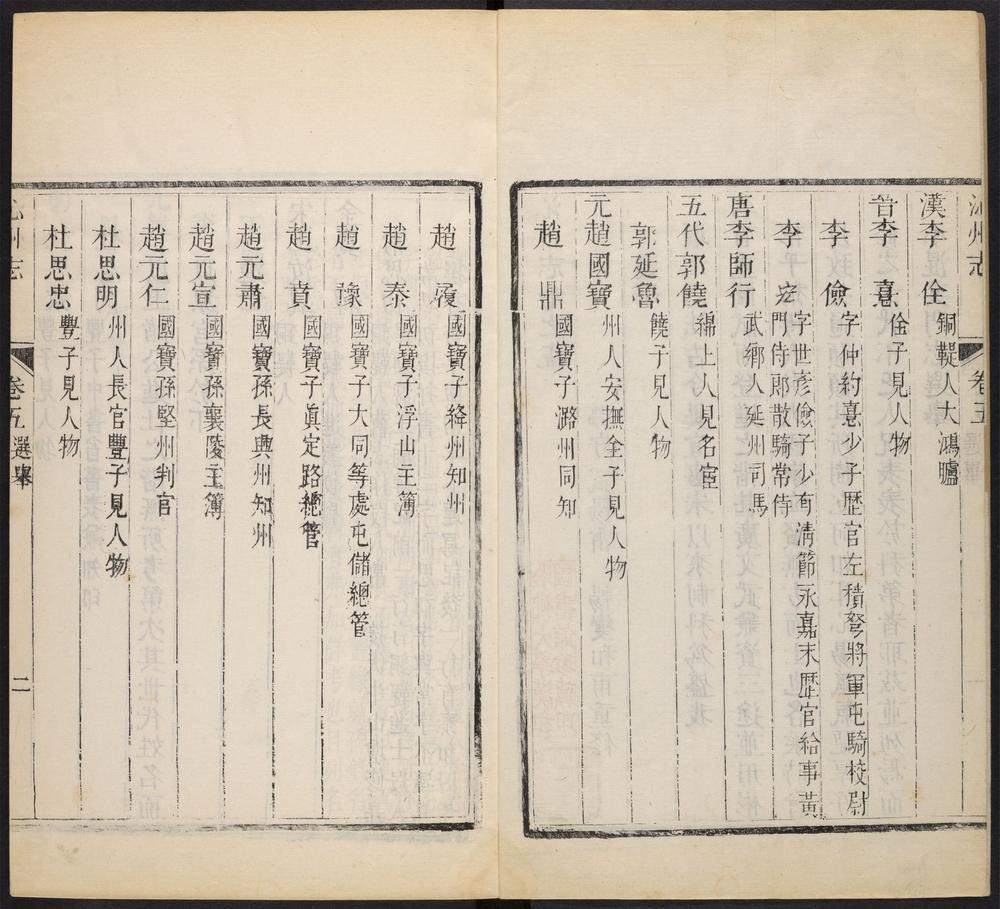 沁州志 卷五
漢李佺 銅鞮人大鴻臚
晉李憙 佺子見人物
李儉 字仲約憙少子歷官左積弩將軍屯騎校尉
李宏 字世彥儉子少有清節永嘉末歷官給事黃
門侍郎散騎常侍
唐李師行 武鄉人延州司馬
五代郭饒 綿上人見名宦
郭延魯 饒子見人物
元趙國寶 州人安撫全子見人物
趙鼎 國寶子潞州同知
趙履 國寶子絳州知州
趙泰 國寶子浮山主簿
趙豫 國寶子大同等處屯儲總管
趙賁 國寶子眞定路總管
趙元肅 國寶孫長興州知州
趙元宣 國寶孫襄陵主簿
趙元仁 國寶孫堅州判官
杜思明 州人長官豐子見人物
杜思忠 豐子見人物
沁州志 卷五選舉 二